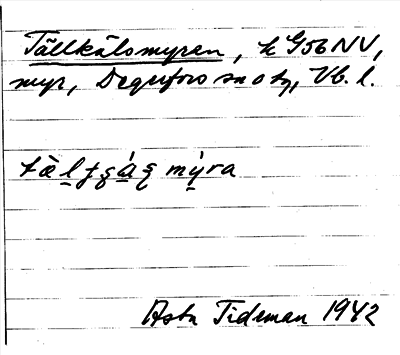 Tällkålsmyren, k G56NV,
myr, Degerfors sn o tg, Vb. l.
mýra
Asta Tideman 1942